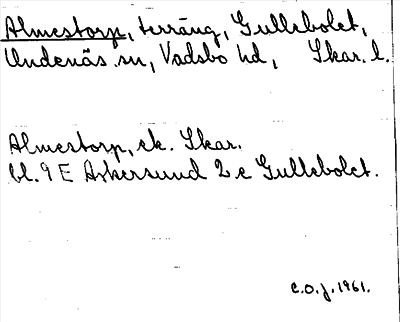 Almestorp, terräng, Gullebolet,
Undenäs sn, Vadsbo hd, Skar. l.
Almestorp, ek. Skar.
bl. 9 E Askersund 2 e Gullebolet.
C.O.J. 1961.